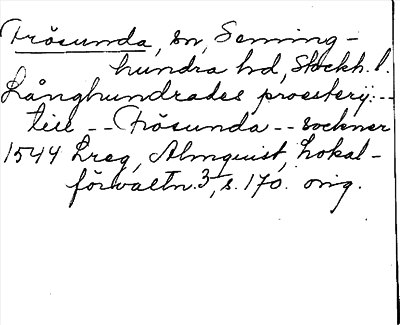 Frösunda, sn, Seming-
hundra hd, Stockh. l.
Långhundrades prosterij --
till -- Frösunda -- sockner
1544 Lreg, Almquist, Lokal-
förvaltn. 3, s. 170. orig.